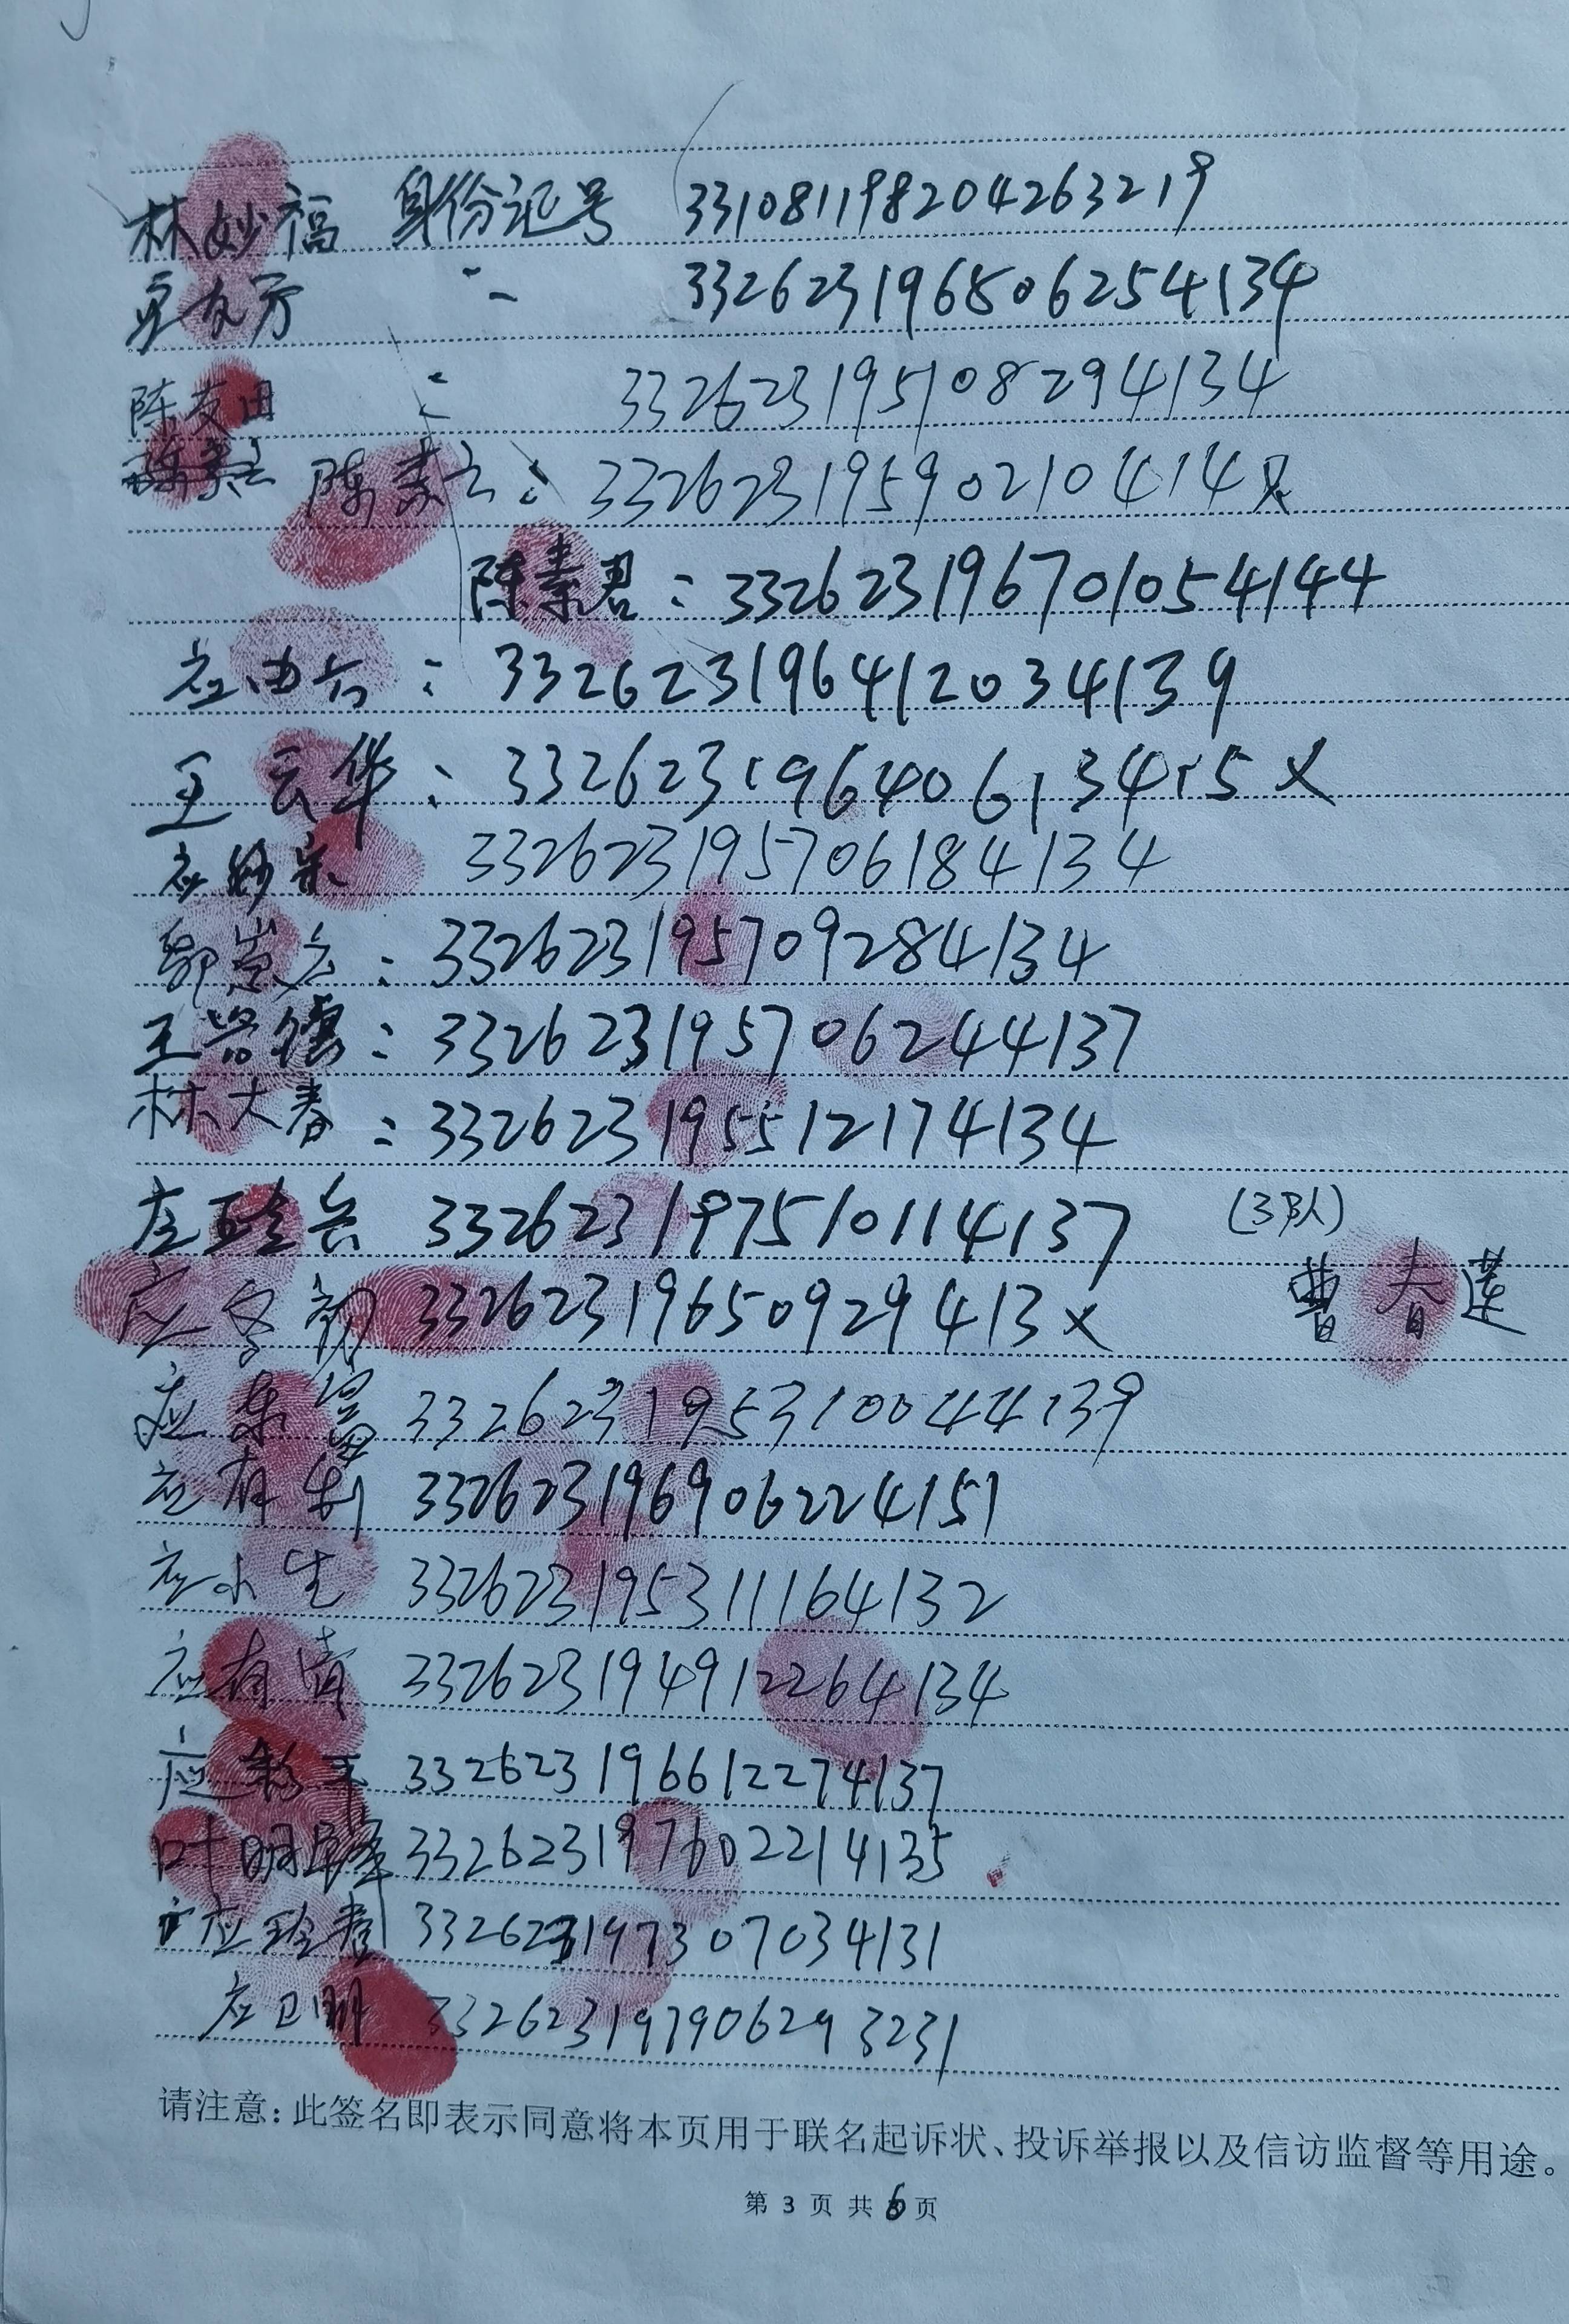 林妙福 身份证号 331081198204263219
332623196506254134
陈友田 332623195108294134
陈素云: 33262319590210414X
陈素君: 332623196701054144
应由云: 332623196412034139
王云华: 33262319640613415X
应妙宗 332623195706184134
郭崇云: 332623195709284134
王兴德: 332623195706244137
林大春: 332623195512174134
332623197510114137 (3队)
应学初 33262319650929413X 曹春莲
应 332623195310044139
应有制 332623196906224151
应小生 332623195311164132
应有清 332623194912264134
应彩平 332623196612274137
叶明 332623197602214135
应 332623197307034131
应卫明 332623197906293231
请注意:此签名即表示同意将本页用于联名起诉状、投诉举报以及信访监督等用途。
第 3 页 共 6 页